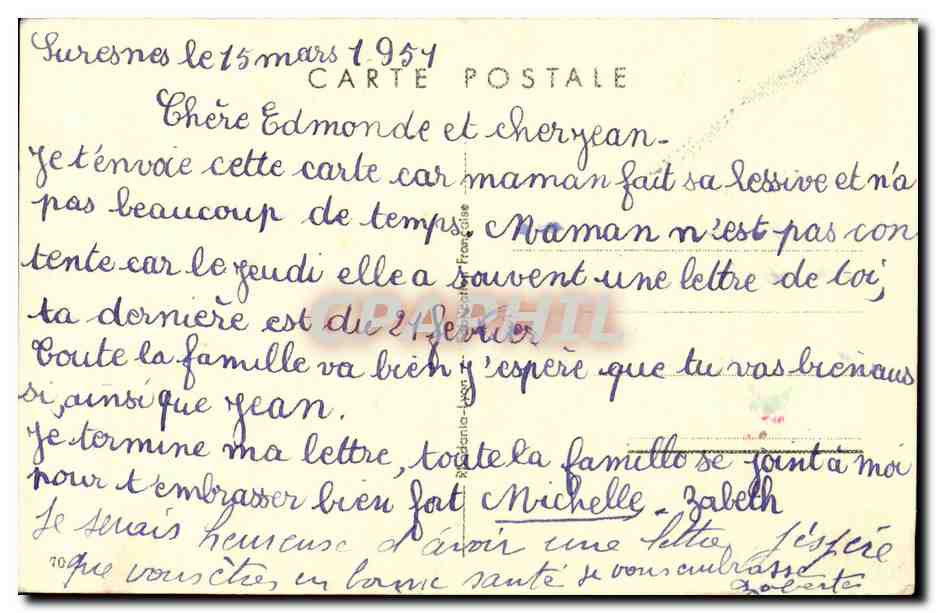 Suresnes le 15 mars 1951
CARTE POSTALE
Chère Edmonde et cher Jean-
Je t'énvoie cette carte car maman fait sa lessive et n'a
pas beaucoup de temps. Maman n'est pas con
tente car le jeudi elle a souvent une lettre de toi,
ta dernière est du 21 fevrier
Toute la famille va bien j'espère que tu vas bien aus
si, ainsi que Jean.
Je termine ma lettre, toute la famille se joint à moi
pour t'embrasser bien fort Michelle - Zabeth
Je serais heureuse d'avoir une lettre J'éspère
que vous êtes en bonne santé je vous embrasse
70
Fabrication Française
CPAPHIL